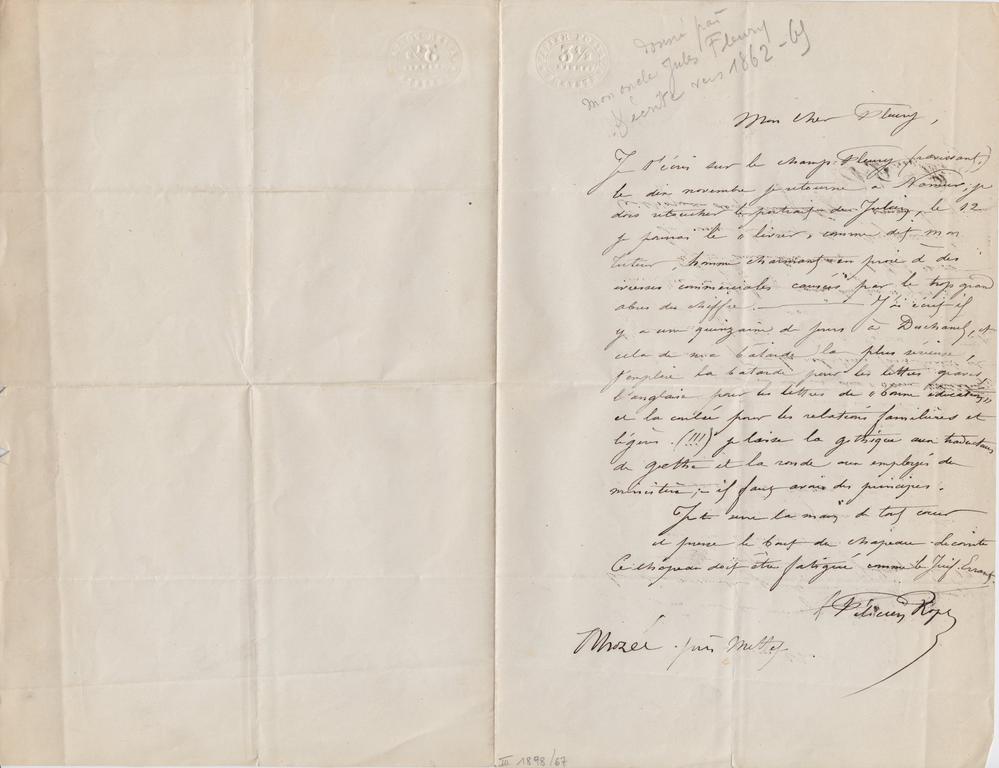 donné par
mon oncle Jules Fleury
écrite vers 1862-65
Mon cher Fleury,
Je t'écris sur le champ. Fleury (ravissant,)
le dix novembre je retourne à Namur. je
dois retoucher le portrait de Julien, le 12
je pourrai le « livrer » comme dit mon
tuteur, homme charmant en proie à des
ivresses commerciales causées par le trop grand
abus du chiffre. — J'ai écrit il
y a une quinzaine de jours à Deschanel, et
cela de ma bâtarde la plus sérieuse,
J'emploie la bâtarde pour les lettres graves
l'anglaise pour les lettres de « bonne éducation »
et la coulée pour les relations familières et
légères. (!!!) je laisse la gothique aux traducteurs
de goethe et la ronde aux employés de
ministère ; – il faut avoir des principes.
Je te serre la main de tout cœur
et presse le bout du chapeau. Lecointe
Ce chapeau doit être fatigué comme le Juif. Errant.
Félicien Rops
Thozée. près Mettet
III 1898/67